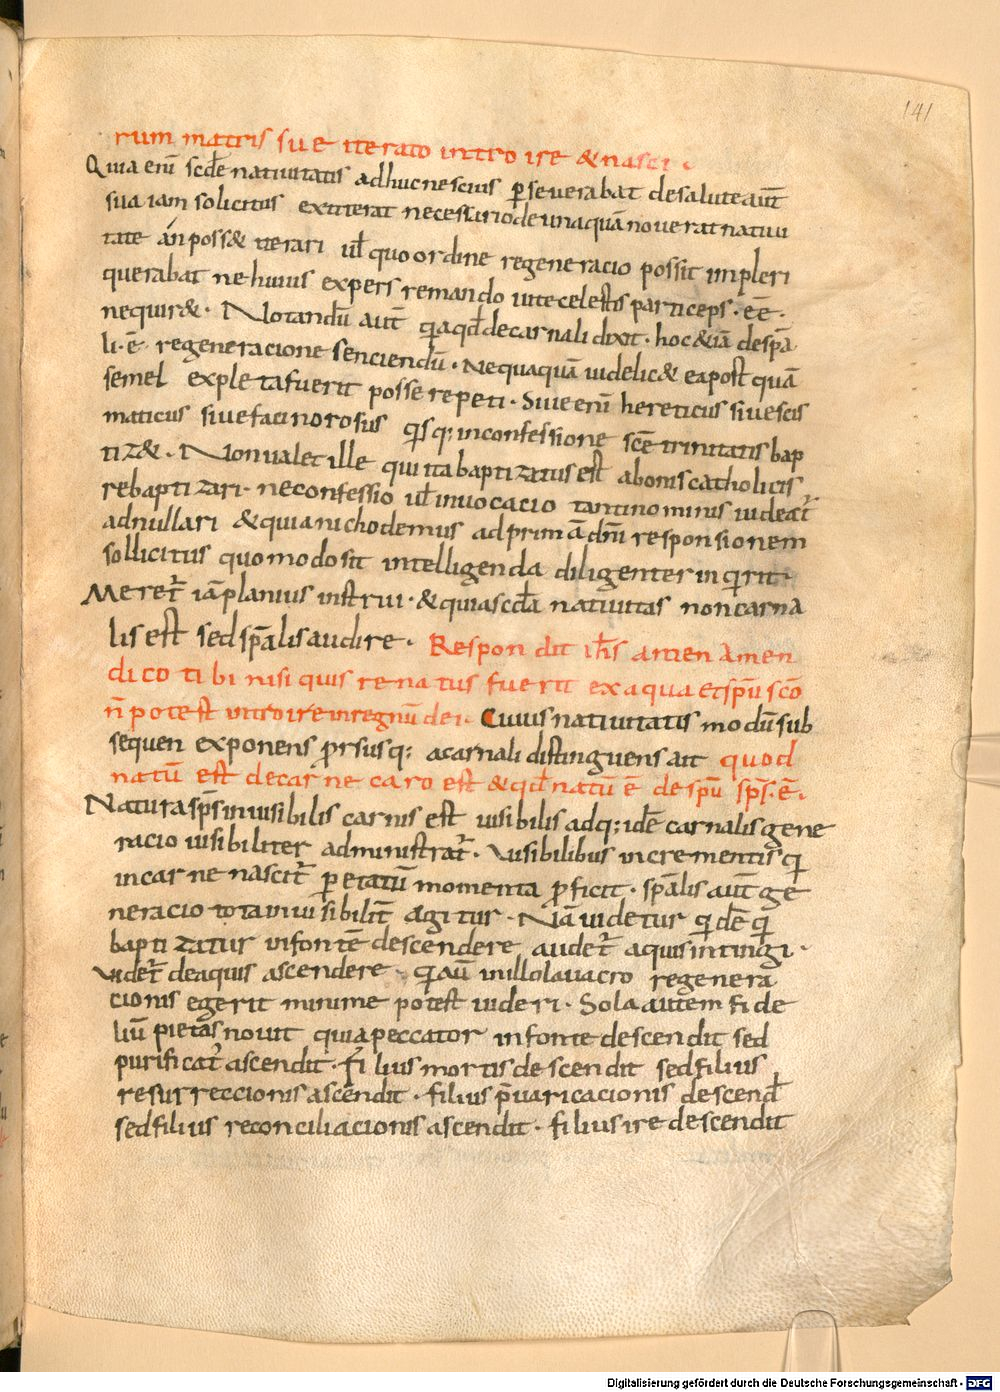 141
rum matris suę iterato introire & nasci.
Quia eni̅ scd̅e nativitatis adhuc nescius p̲severabat de salute aut̅
sua iam solicitus extiterat necessario de una quā noverat nativi
tate án poss& iterari ul̅ quo ordine regeneracio possit impleri
querabat ne huius expers remando vite celestis particeps. ee̅.
nequir&. Notandu̅ aut̅ quia qd̅ de carnali dixit. hoc &iā de sp̅a
li. e̅. regeneracione senciendu̅. Nequaquā videlic& ea postquā
semel expleta fuerit posse repeti. Sive eni̅ hereticus sive scis
maticus sive facinorosus qisq; in confessione sce̅ trinitatis bap
tiz&. Non valet ille qui ita baptizatus est a bonis catholicis
rebaptizari. ne confessio ul̅ invocacio tanti nominis videat̅
adnullari & quia nichodemus ad primā dn̅i responsionem
sollicitus quomodo sit intelligenda diligenter inqirit.
Meret̅ iā planius instrui. & quia scd̅a nativitas non carna
lis est sed sp̅alis audire. Respondit ih̅s amen amen
dico tibi nisi quis renatus fuerit ex aqua et sp̅u sc̅o
n̅ potest introire in regnu̅ dei. Cuius nativitatis modu̅ sub
sequen exponens prorsusq; a carnali distinguens ait quod
natu̅ est de carne caro est & qd̅ natu̅ e̅ de sp̅u sp̅s. e̅.
Natura sp̅s invisibilis carnis est visibilis adq; ide̅ carnalis gene
racio visibiliter administrat̅. Visibilibus incrementis qi
in carne nascit̅ p̲ etatu̅ momenta proficit. sp̅alis aut̅ ge
neracio tota invisibilit̅ agitur. Nā videtur qide̅ qi
baptizatur in fonte̅ descendere audet̅ aquis intingi.
videt̅ de aquis ascendere. qi au̅ in illo lavacro regenera
cionis egerit minime potest videri. Sola autem fide
liu̅ pietas novit quia peccator in fonte descendit sed
purificat̅ ascendit. filius mortis descendit sed filius
resurreccionis ascendit. filius p̅varicacionis descend̅
sed filius reconciliacionis ascendit. filius ire descendit
Digitalisierung gefördert durch die Deutsche Forschungsgemeinschaft - DFG